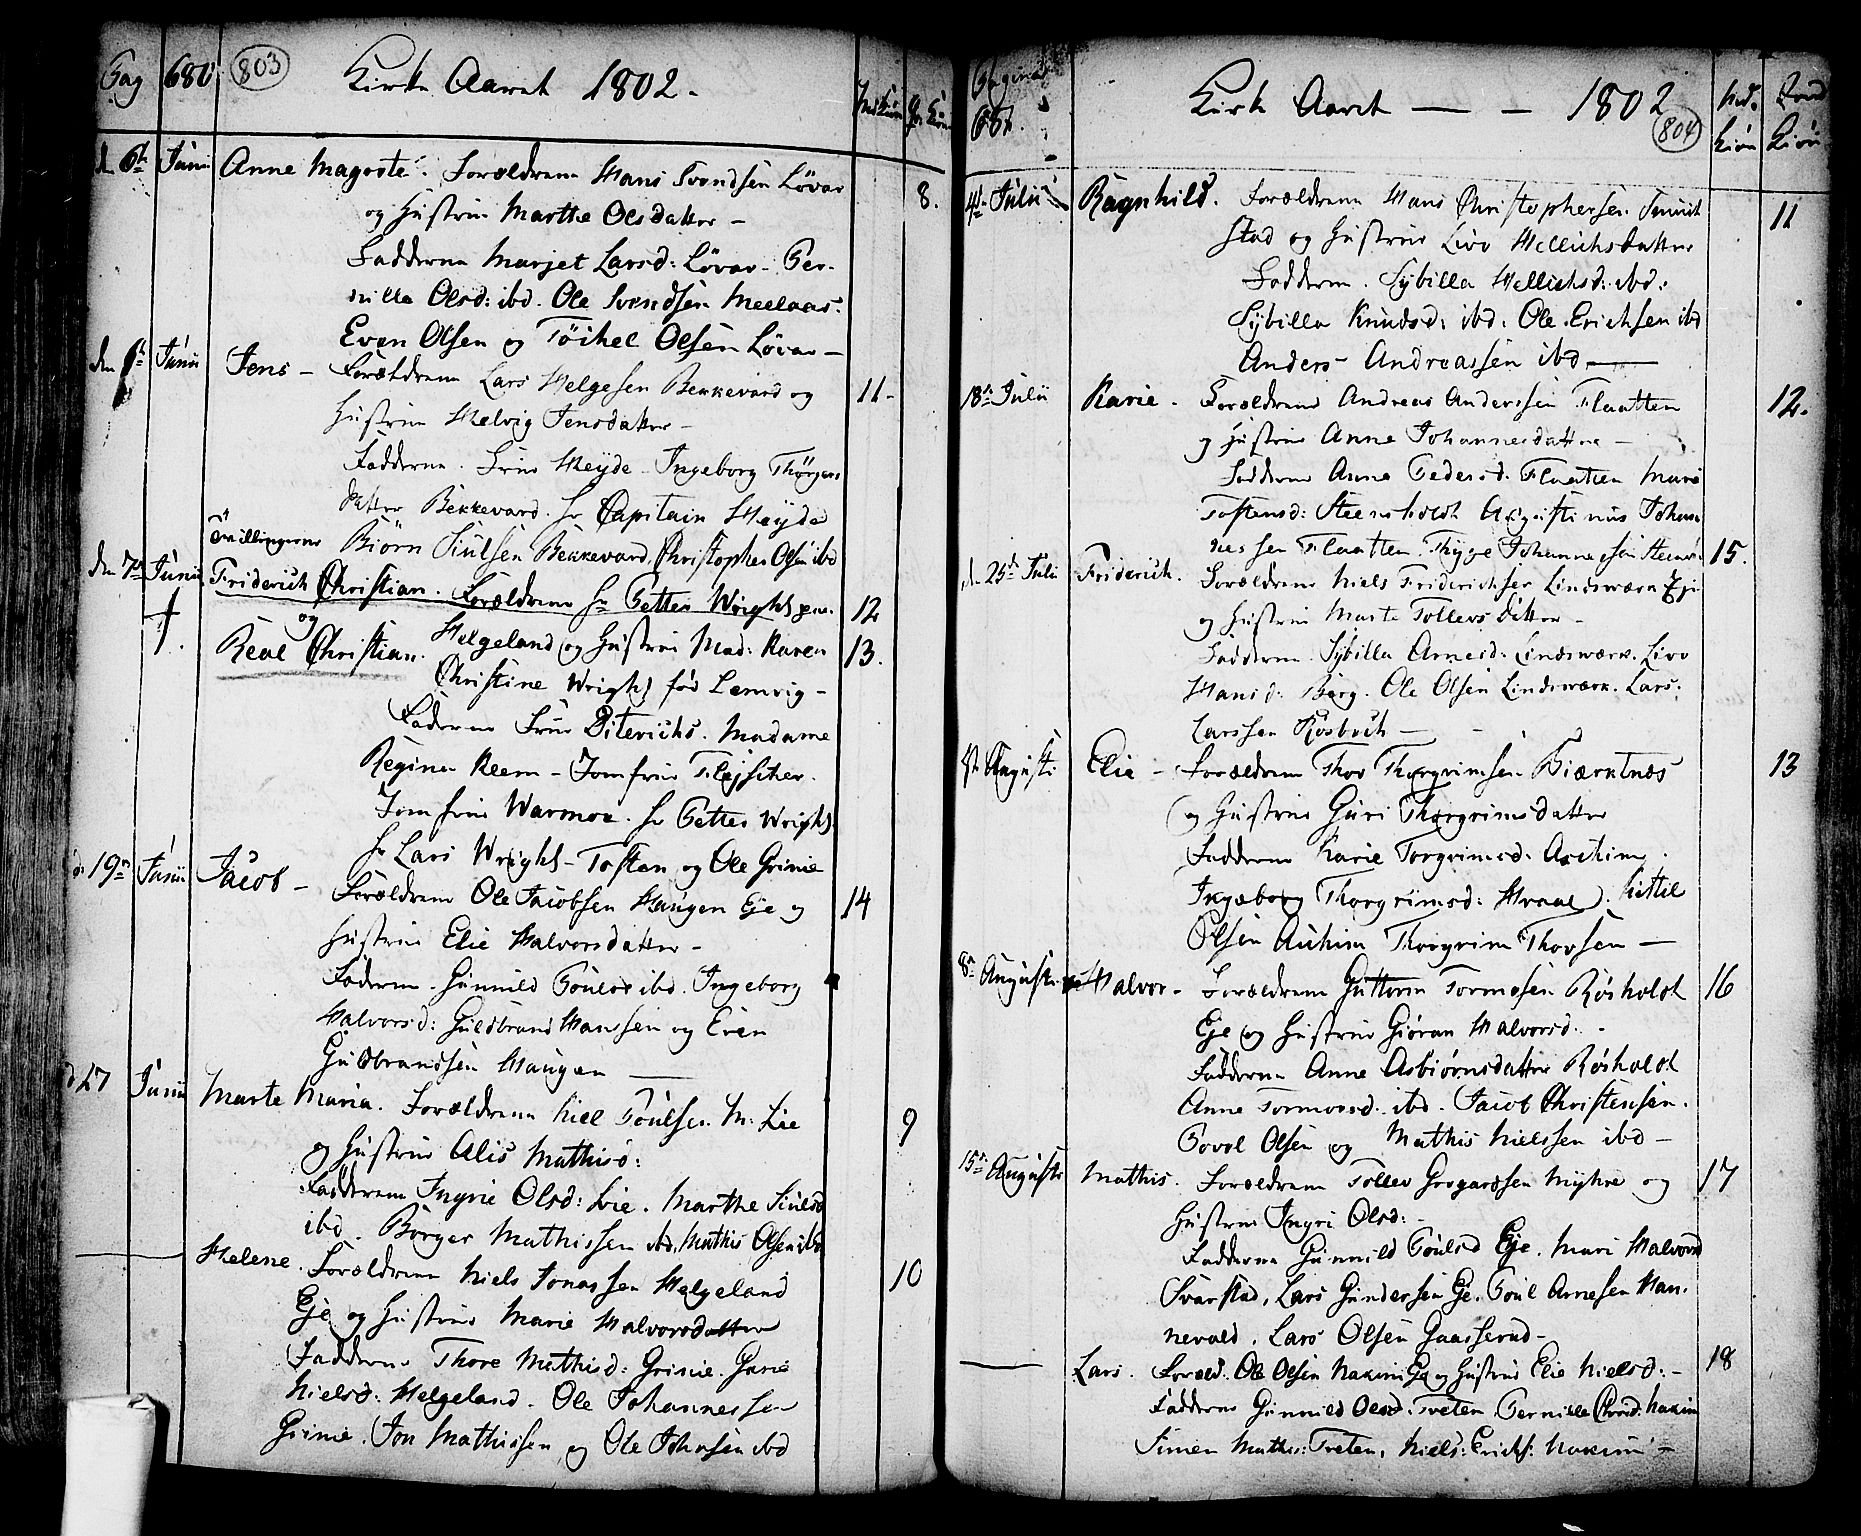 Pag 680 803 Kirke Aaret 1802. Md Kiøn Qv. Kiøn
d. 6te Junii Anne Magrete. Forældrene Hans Svendsen Løver 8.
og Hustrue Marthe Olsdatter -
Fadderne Marjet Larsd: Løver. Per-
nille Olsd: ibd. Ole Svendsen Meelaas.
Even Olsen og Olsen Løver -
den 6te Junii Jens - Forældrene Lars Helgesen Bekkevard og 11.
Hustrue Helvig Jensdatter -
Fadderne. Frue Heyde. Ingeborg
datter Bekkevard. hr Capitain Heyde
Tvillingerne Biørn Bekkevard. Christopher Olsen ibd
den 7de Junii Friderich Christian. Forældrene hr Petter Wright paa 12
og
Real Christian. Helgeland og Hustrue Mad: Karen 13.
Christine Wright fød Lemvig -
Fadderne Frue Diterichs. Madame
Regina Reem - Jomfrue Flejscher.
Jomfrue Warmoe. hr Petter Wright.
hr Lars Wright - Tosten og Ole Grinie
d. 19de Junii Jacob - Forældrene Ole Jacobsen Haugen Eje og 14
Hustrue Elie Halvorsdatter -
Fadderne. Gunnild Poulsd ibd. Ingeborg
Halvorsd: Guldbrand Hanssen og Even
Guldbrandsen Haugen
d 27 Junii Marte Maria. Forældrene Niel Poulsen N: Lie 9
og Hustrue Alis Mathisd:
Fadderne Ingrie Olsd: Lie. Marthe
ibd. Børger Mathissen ibd. Mathis Olsen ibd
Helene. Forældrene Niels Jonassen Helgeland 10
Eje og Hustrue Marie Halvorsdatter
Fadderne Thore Mathisd: Grinie.
Nielsd: Helgeland. Ole Johannessen
Grinie. Jon Mathissen og Ole Johnsen ibd
Pagina 681. Kirke Aaret — — 1802 804 Md. Kiøn Qvind Kiøn
4de Julii Ragnhild. Forældrene Hans Christophersen 11
stad og Hustrue Live Hellichsdatter
Fadderne. Sybilla Hellichsd: ibd:
Sybilla Knudsd: ibd: Ole Erichsen ibd
Anders Andreassen ibd —
18de Julii Karie - Forældrene Andreas Anderssen Flaatten 12.
og Hustrue Anne Johannesdatter -
Fadderne Anne Pedersd. Flaatten Marie
Tostensd: Steensholdt Augustinus Johan-
nessen Flaatten. Thyge Johannessen
den 25de Julii Friderich. Forældrene Niels Friderichsen Lindsværk Eje 15.
og Hustrue Marte Tollevsdatter -
Fadderne. Sybilla Arnesd: Lindsværk. Live
Hansd: Berg. Ole Olsen Lindsværk. Lars
Larssen Rosbach —
Augusti Elie - Forældrene Thor Thorgrimsen Biærtnæs 13
og Hustrue Guri Thorgrimsdatter
Fadderne Karie Torgrimsd: Aschim.
Ingeborg Thorgrimsd: Hvaal. Kittil
Olsen Aschim Thorgrim Thorsen —
8de Augusti Halvor - Forældrene Guttorm Tormosen Røsholdt 16
Eje og Hustrue Giøran Halvorsd: -
Fadderne Anne Asbiørnsdatter Røsholdt
Anne Tormorsd. ibd. Jacob Christensen.
Povel Olsen og Mathis Nielssen ibd -
15de Augusti Mathis. Forældrene Tollev Gregersen Myhre og 17
Hustrue Ingri Olsd: -
Fadderne Gunnild Poulsd Eje. Mari Halvorsd
Svarstad. Lars Gundersen Eje. Poul Arnesen Han-
nevald. Lars Olsen Gaasserud -
Lars. Foræld. Ole Olsen Nakim Eje og Hustrue Elie Nielsd: - 18
Fadderne Gunnild Olsd. Treten. Pernille Nakim
Simen Mathis: Treten, Niels: Erichs: Nakim -